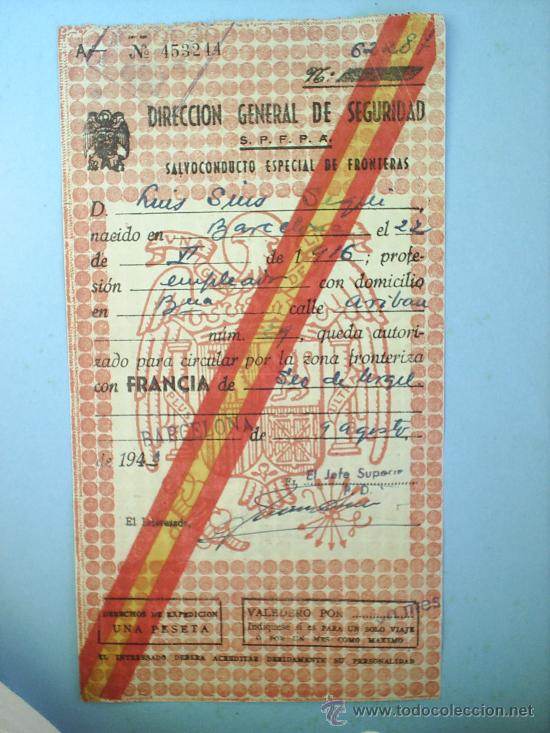 A— Nº 453244
DIRECCION GENERAL DE SEGURIDAD
S. P. F. P. A.
SALVOCONDUCTO ESPECIAL DE FRONTERAS
D. Luis
nacido en Barcelona el 22
de VI de 1916; profe-
sión empleado con domicilio
en Bna calle Aribau
núm. queda autori-
zado para circular por la zona fronteriza
con FRANCIA de Seo de Urgel
BARCELONA de Agosto
de 194
El Jefe Superior
P. D.
El Interesado,
DERECHOS DE EXPEDICION
UNA PESETA
VALEDERO POR un mes
Indíquese si es PARA UN SOLO VIAJE
O POR UN MES COMO MAXIMO
EL INTERESADO DEBERA ACREDITAR DEBIDAMENTE SU PERSONALIDAD
www.todocoleccion.net